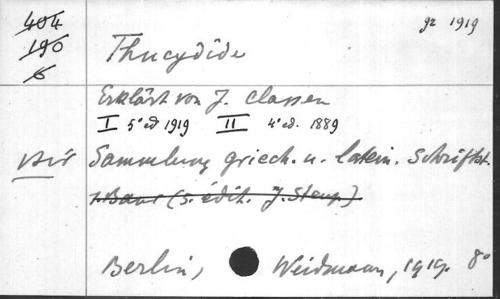 404
190
6
gr 1919
Thucydide
Erklärt von J. Classen
I 5e ed 1919 II 4e ed. 1889
Sammlung griech. u. latein. Schriftst.
1. Band (5. édit. J. Steup)
Berlin, Weidmann, 1919. 8o